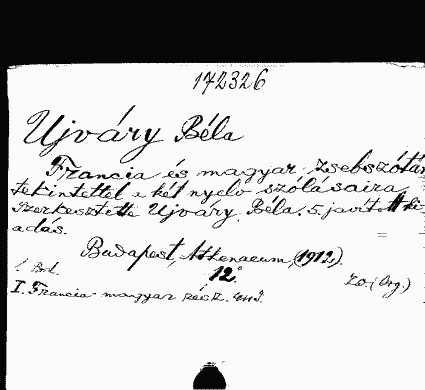 172326
Ujváry Béla
Francia és magyar zsebszótár
tekintettel a két nyelv szólásaira.
Szerkesztette Ujváry Béla. 5. javított ki-
adás.
Budapest, Athenaeum, (1912).
12°.
I. Francia-magyar rész.